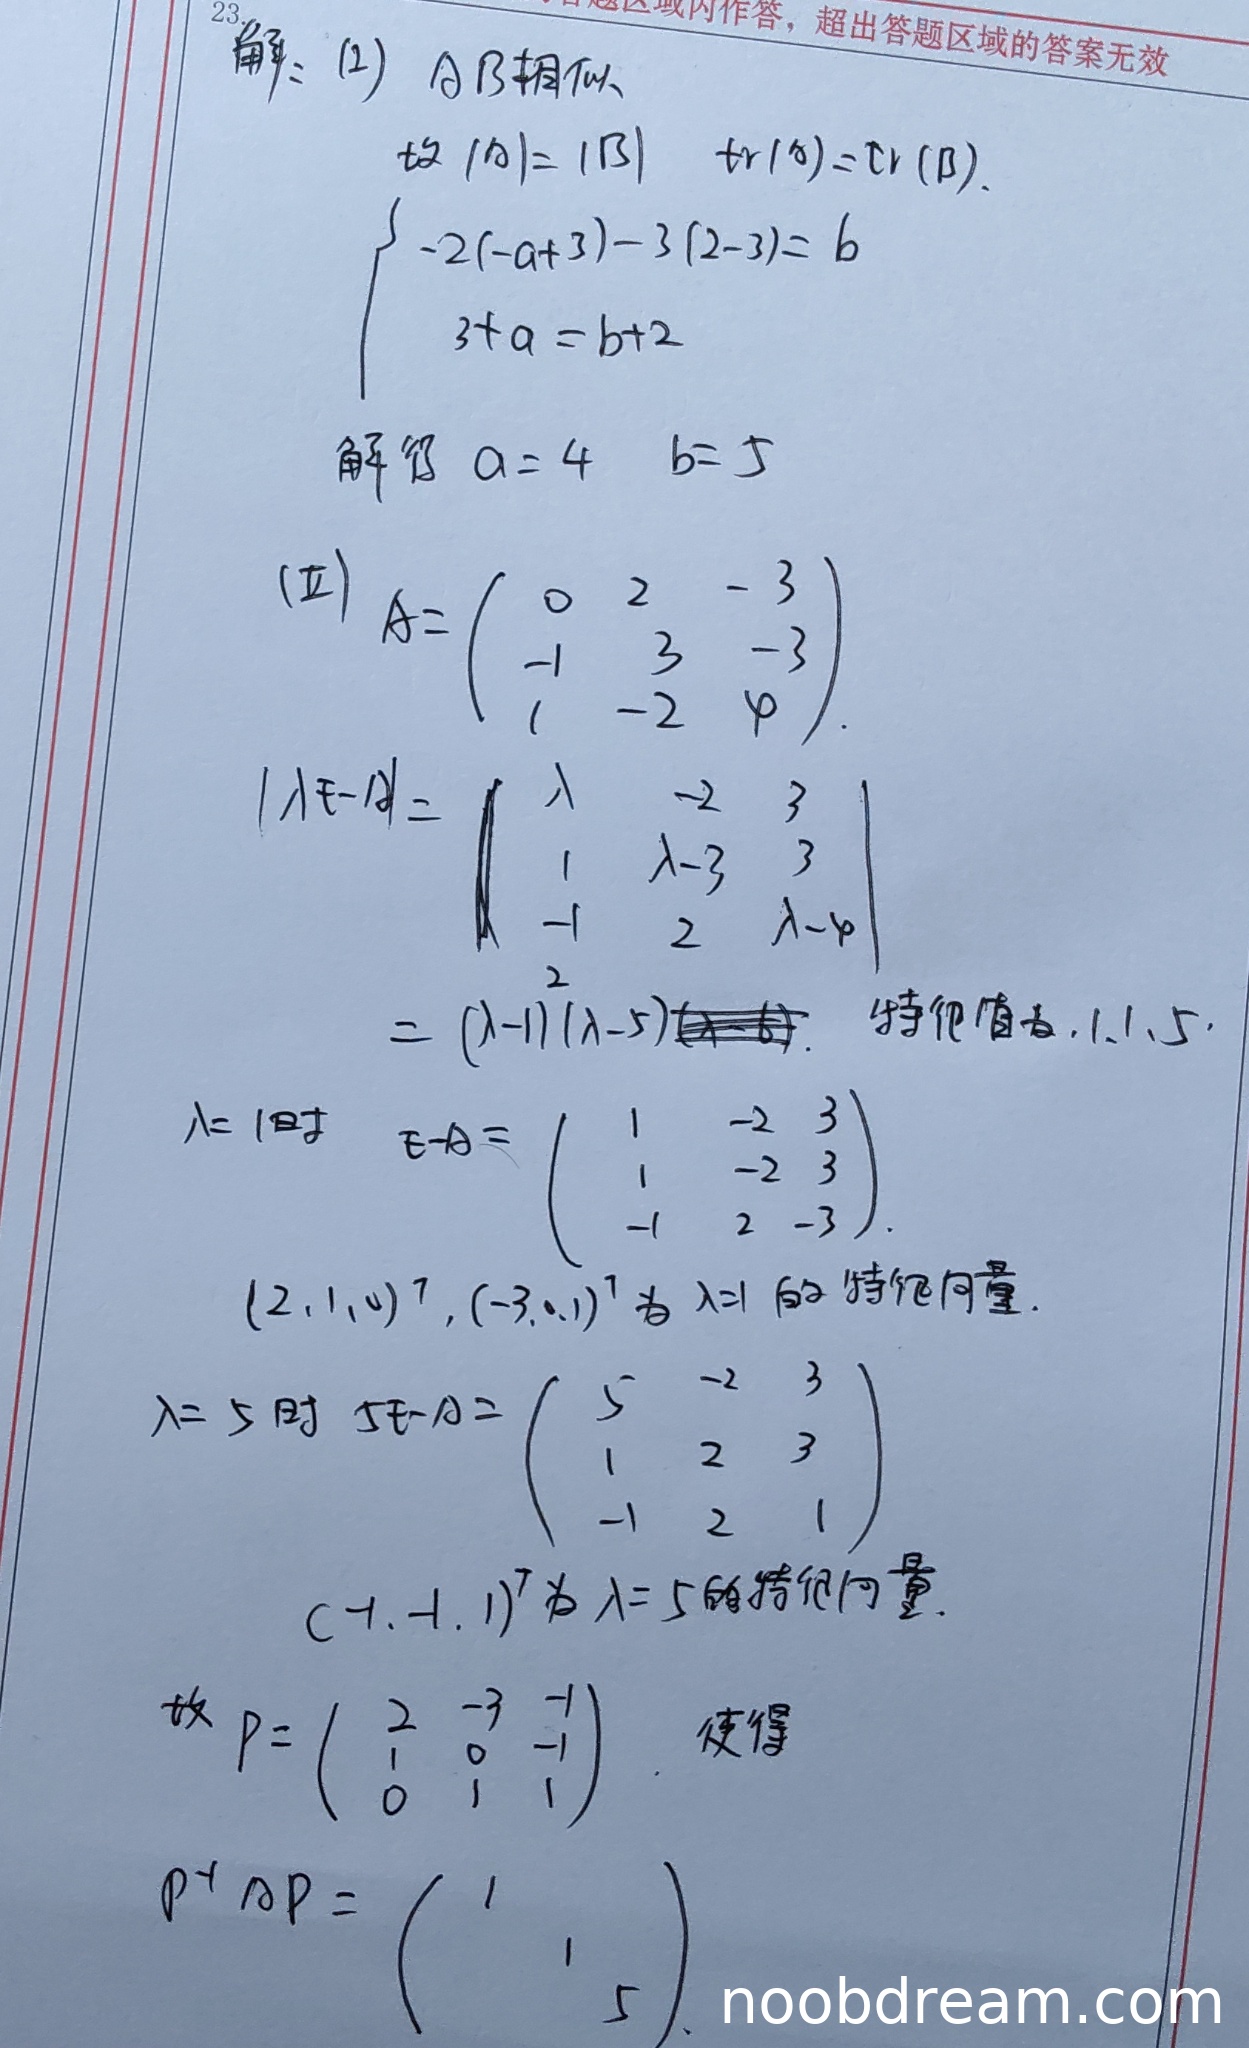 23.
答题区域内作答，超出答题区域的答案无效
解: (I) AB相似
故 |A|=|B| tr(A)=tr(B).
-2(-a+3)-3(2-3)=b
3+a=b+2
解得 a=4 b=5
(II) A= ( 0 2 -3
-1 3 -3
1 -2 4 ).
|λE-A|= | λ -2 3
1 λ-3 3
-1 2 λ-4 |
= (λ-1)²(λ-5) 特征值为.1.1.5.
λ=1时 E-A= ( 1 -2 3
1 -2 3
-1 2 -3 ).
(2,1,0)ᵀ, (-3,0,1)ᵀ 为 λ=1 的特征向量.
λ=5时 5E-A= ( 5 -2 3
1 2 3
-1 2 1 )
(-1.-1.1)ᵀ为 λ=5的特征向量.
故 P= ( 2 -3 -1
1 0 -1
0 1 1 ). 使得
P⁻¹AP= ( 1
1
5 ).
noobdream.com